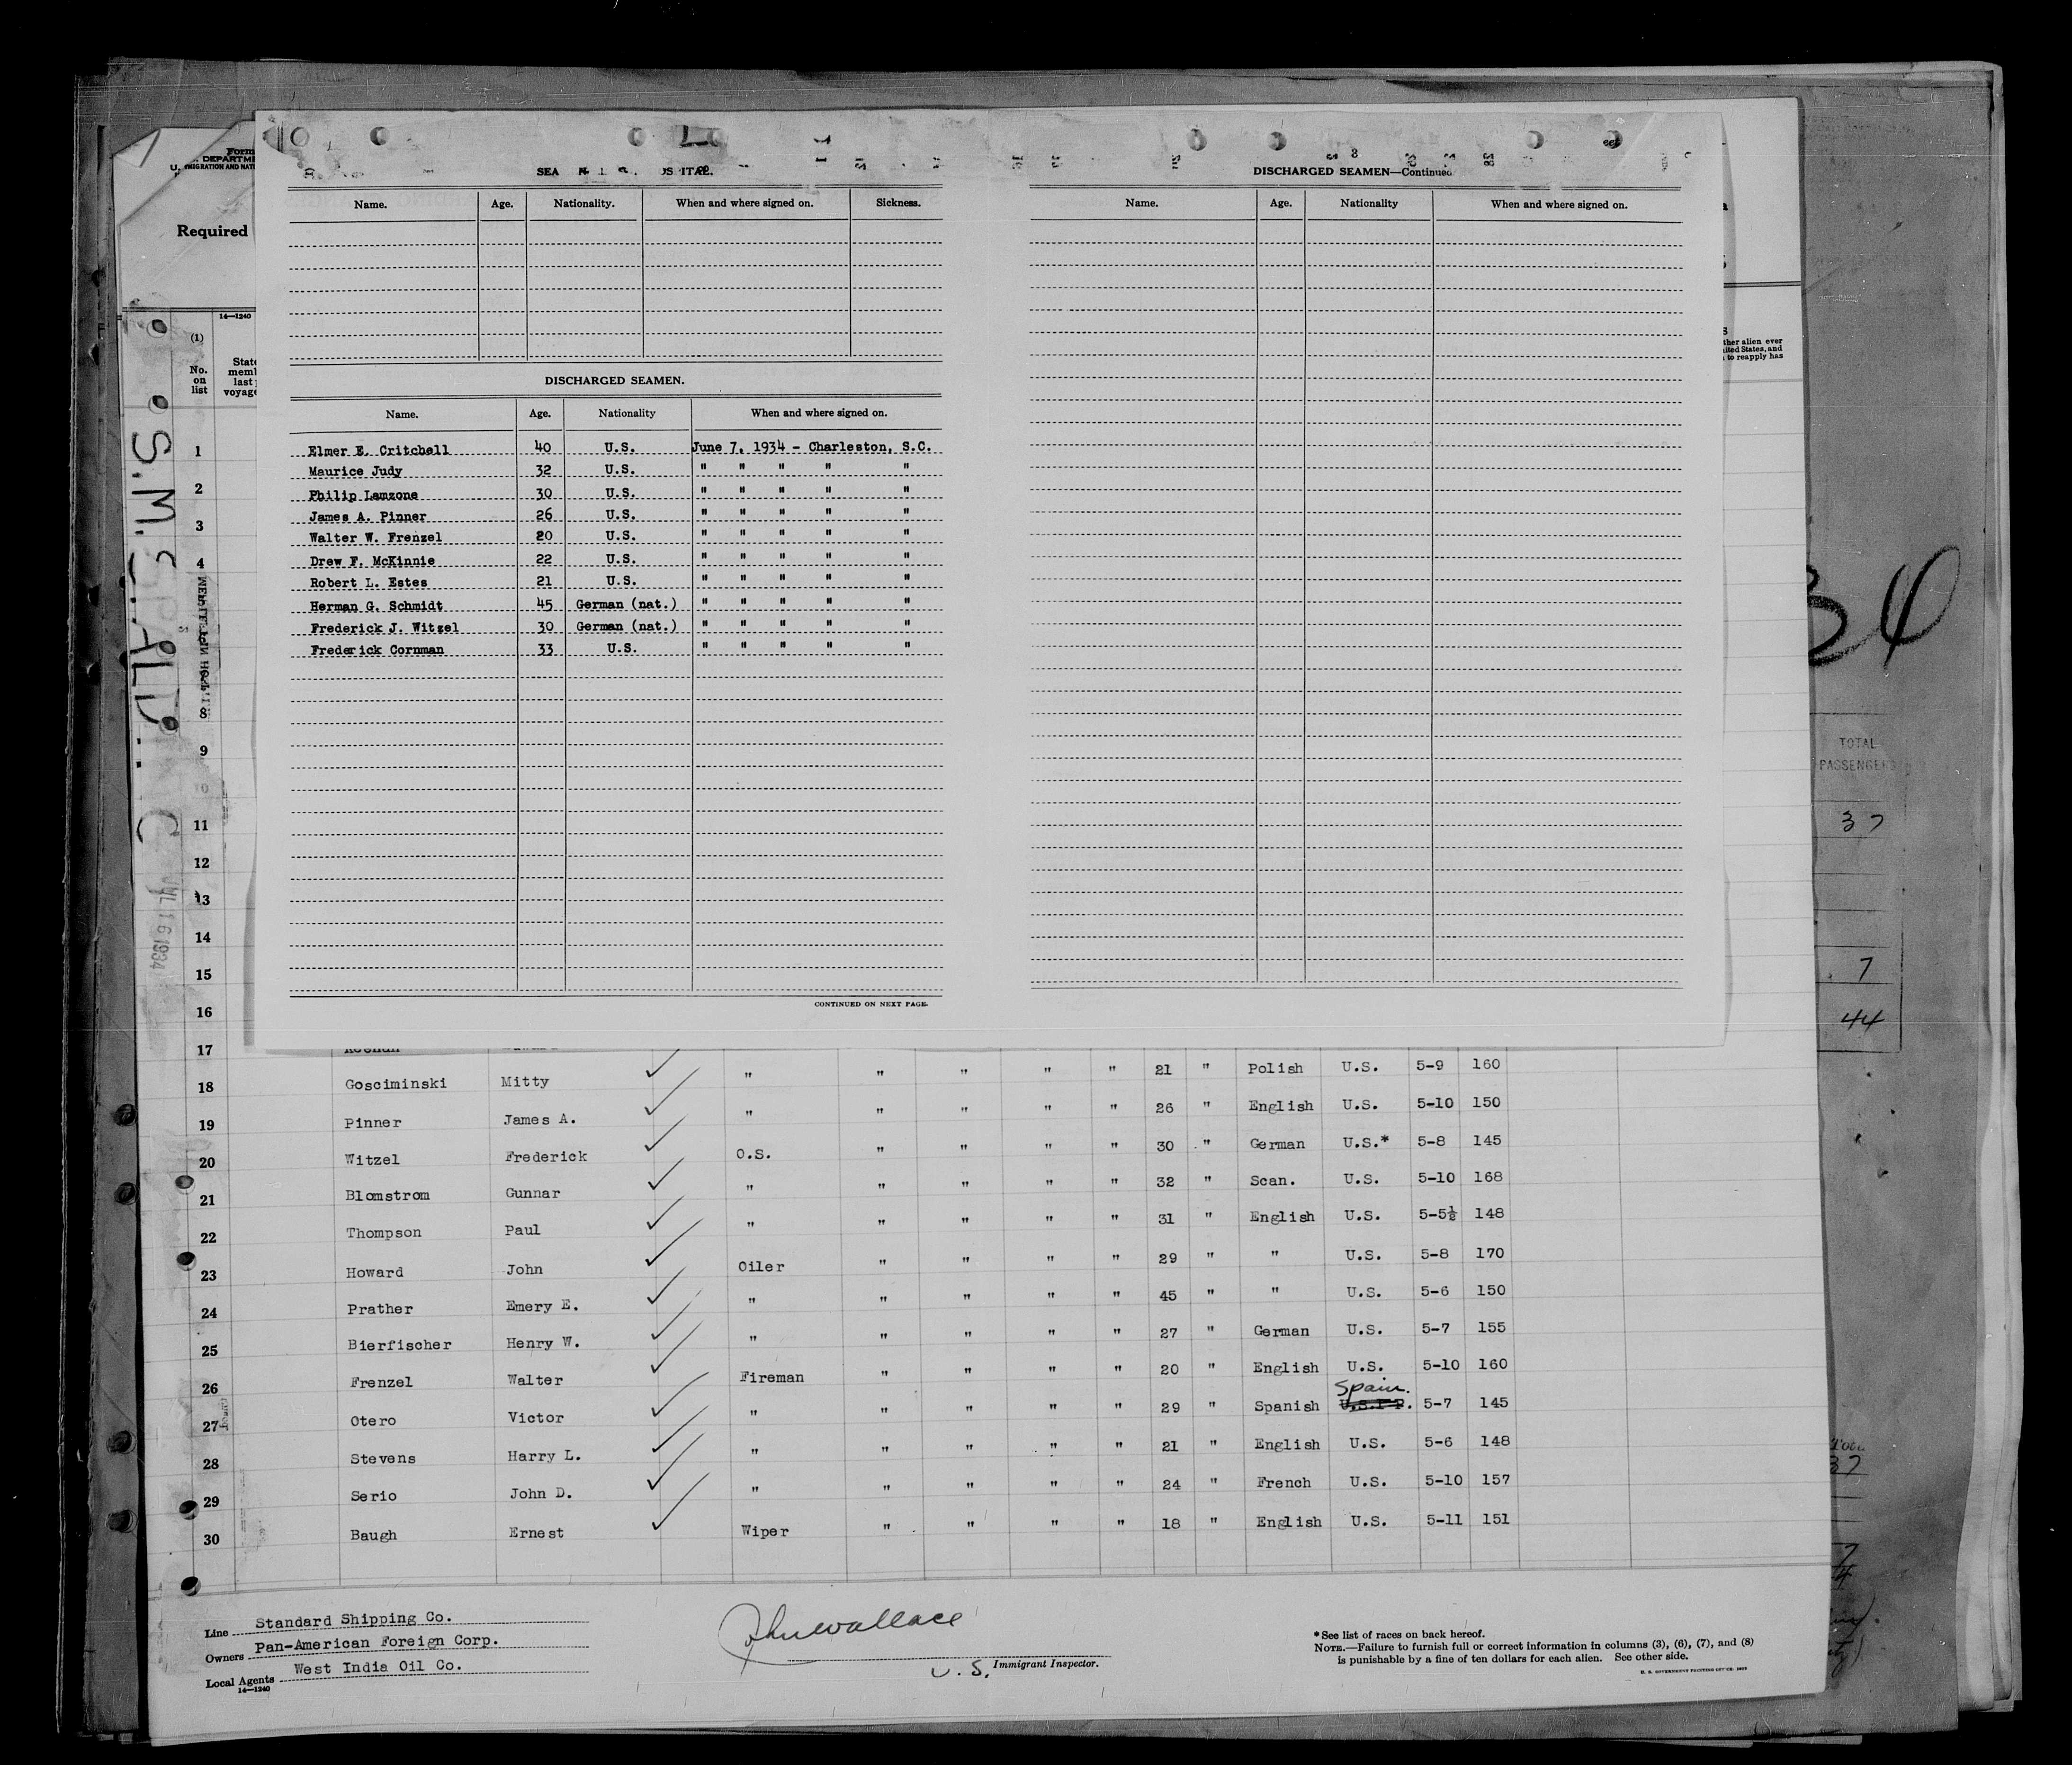 Form
U. DEPARTME
MIGRATION AND NAT
Required
14—1240
(1)
No.
on
list
State
mem
last
voyage
SEA
DISCHARGED SEAMEN—Continued
Name. Age. Nationality. When and where signed on. Sickness.
Name. Age. Nationality When and where signed on.
DISCHARGED SEAMEN.
Name. Age. Nationality When and where signed on.
Elmer E. Critchell 40 U.S. June 7, 1934 - Charleston, S.C.
Maurice Judy 32 U.S. " " " " "
Philip Lamzone 30 U.S. " " " " "
James A. Pinner 26 U.S. " " " " "
Walter W. Frenzel 20 U.S. " " " " "
Drew F. McKinnie 22 U.S. " " " " "
Robert L. Estes 21 U.S. " " " " "
Herman G. Schmidt 45 German (nat.) " " " " "
Frederick J. Witzel 30 German (nat.) " " " " "
Frederick Cornman 33 U.S. " " " " "
CONTINUED ON NEXT PAGE.
ther alien ever
ited States, and
to reapply has
1
2
3
4
8
9
11
12
13
14
15
16
17
18 Gosciminski Mitty " " " " " 21 " Polish U.S. 5-9 160
19 Pinner James A. " " " " " 26 " English U.S. 5-10 150
20 Witzel Frederick O.S. " " " " 30 " German U.S.* 5-8 145
21 Blomstrom Gunnar " " " " " 32 " Scan. U.S. 5-10 168
22 Thompson Paul " " " " " 31 " English U.S. 5-5½ 148
23 Howard John Oiler " " " " 29 " " U.S. 5-8 170
24 Prather Emery E. " " " " " 45 " " U.S. 5-6 150
25 Bierfischer Henry W. " " " " " 27 " German U.S. 5-7 155
26 Frenzel Walter Fireman " " " " 20 " English U.S. 5-10 160
Spain.
27 Otero Victor " " " " " 29 " Spanish 5-7 145
28 Stevens Harry L. " " " " " 21 " English U.S. 5-6 148
29 Serio John D. " " " " " 24 " French U.S. 5-10 157
30 Baugh Ernest Wiper " " " " 18 " English U.S. 5-11 151
Line Standard Shipping Co.
Owners Pan-American Foreign Corp.
Local Agents West India Oil Co.
14—1240
John Wallace
U. S. Immigrant Inspector.
*See list of races on back hereof.
NOTE.—Failure to furnish full or correct information in columns (3), (6), (7), and (8)
is punishable by a fine of ten dollars for each alien. See other side.
34
TOTAL
PASSENGERS
37
7
44
JUL 16 1934